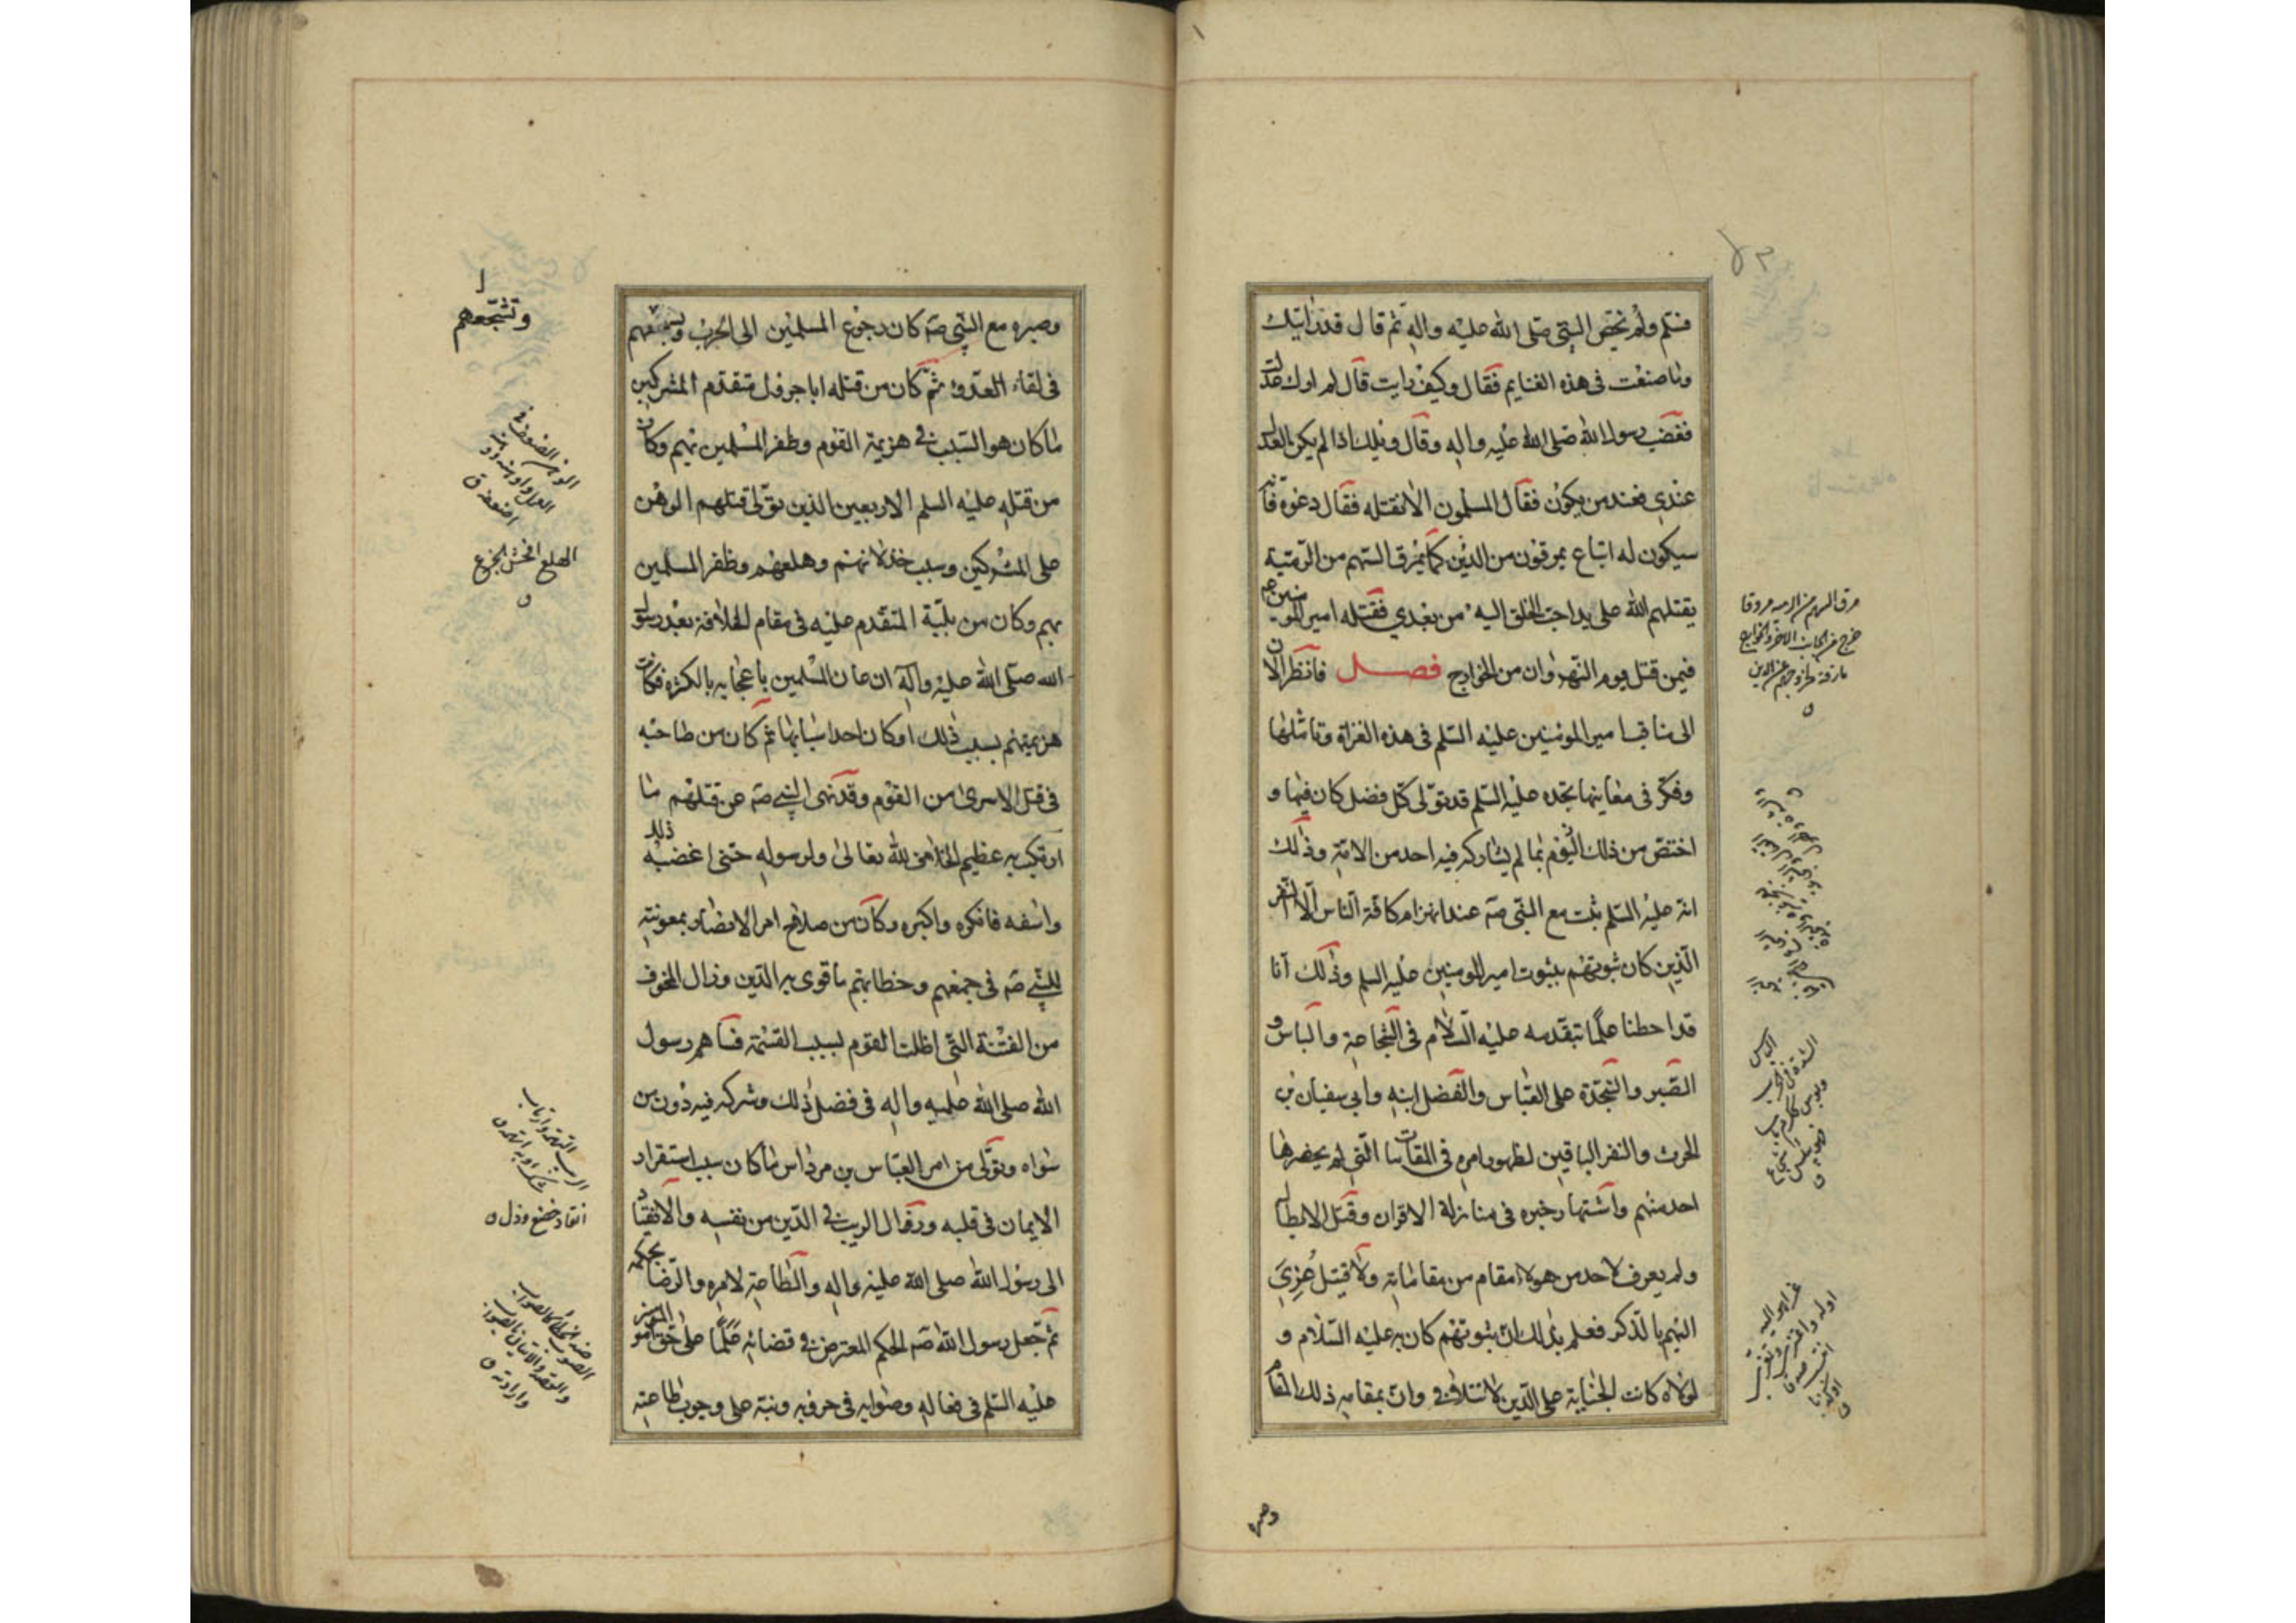 فسلم ولم يخص النبي صلى الله عليه واله ثم قال قد رايتك
وما صنعت فى هذه الغنايم فقال وكيف رايت قال لم ارك عدلت
فغضب رسول الله صلى الله عليه واله وقال ويلك اذا لم يكن العدل
عندي فعند من يكون فقال المسلمون الا نقتله فقال دعوه فانه
سيكون له اتباع يمرقون من الدين كما يمرق السهم من الرمية
يقتلهم الله على يد احب الخلق اليه من بعدي فقتله امير المومنين
فيمن قتل يوم النهروان من الخوارج فصل فانظر الان
الى مناقب امير المومنين عليه السلم فى هذه الغزاة وتاملها
وفكر فى معانيها تجده عليه السلم قد تولى كل فضل كان فيها و
اختص من ذلك اليوم بما لم يشاركه فيه احد من الامة وذلك
انه عليه السلم ثبت مع النبى صه عند انهزام كافة الناس الا النفر
الذين كان ثبوتهم بثبوت امير المومنين عليه السلم وذلك انا
قد احطنا علما بتقدمه عليه السلام فى الشجاعة والباس و
الصبر والنجدة على العباس والفضل ابنه وابي سفيان بن
الحرث والنفر الباقين لظهور امره فى المقامات التى لم يحضرها
احد منهم واشتهار خبره فى منازلة الاقران وقتل الابطال
ولم يعرف لاحد من هولاء مقام من مقاماته ولا قتيل عزي
اليهم بالذكر فعلم بذلك ان ثبوتهم كان به عليه السلام و
لولاه كانت الجناية على الدين لا تتلافى وان بمقامه ذلك المقام
مرق السهم من الرمية مروقا
خرج من الجانب الاخر والخوارج
مارقة لخروجهم عن الدين
وصبره
وصبره مع النبي صه كان رجوع المسلمين الى الحرب وتشجعهم
فى لقاء العدو ثم كان من قتله ابا جرول متقدم المشركين
ما كان هو السبب في هزيمة القوم وظفر المسلمين بهم وكان
من قتله عليه السلم الاربعين الذين تولى قتلهم الوهن
على المشركين وسبب خذلانهم وهلعهم وظفر المسلمين
بهم وكان من بلية المتقدم عليه فى مقام الخلافة بعد رسول
الله صلى الله عليه وآله ان عان المسلمين باعجابه بالكثرة فكانت
هزيمتهم بسبب ذلك او كان احد اسبابها ثم كان من صاحبه
فى قتل الاسرى من القوم وقد نهى النبي صه عن قتلهم ما
ارتكب به عظيم الخلاف لله تعالى ولرسوله حتى اغضبه ذلك
واسفه فانكره واكبره وكان من صلاح امر الانصار بمعونته
للنبي صه فى جمعهم وخطابهم ما قوى به الدين وزال الخوف
من الفتنة التى اظلت القوم بسبب القسمة فساهم رسول
الله صلى الله عليه واله فى فضل ذلك وشركه فيه دون من
سواه وتولى من امر العباس بن مرداس ما كان سبب استقرار
الايمان فى قلبه وزوال الريب في الدين من نفسه والانقياد
الى رسول الله صلى الله عليه واله والطاعة لامره والرضا بحكمه
ثم جعل رسول الله صه الحكم المعترض في قضائه علما على حق امير المومنين
عليه السلم فى فعاله وصوابه فى حروبه ونبه على وجوب طاعته
وتشجعهم
الهلع افحش الجزع
انقاد خضع وذل